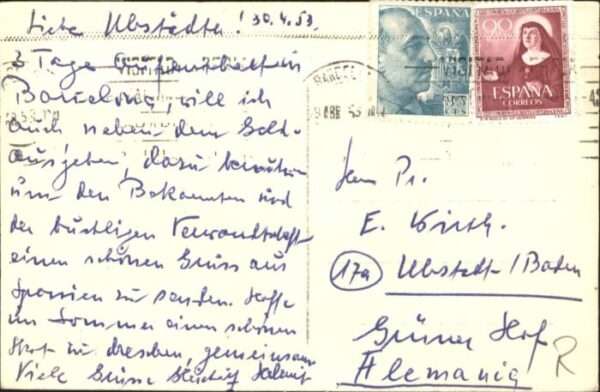 Liebe Ubstädter! 30.4.53.
3 Tage Aufenthalt in
Barcelona, will ich
auch neben dem Geld-
ausgeben, dazu benützen
um den Bekannten und
der buckligen Verwandtschaft
einen schönen Gruss aus
Spanien zu senden. Hoffe
im Sommer einen schönen
zu dreschen, gemeinsam
Viele Grüsse Helmut
ESPAÑA
90
ESPAÑA
CORREOS
E. Wirth.
17a Ubstadt / Baden
Grüner Hof
Alemania
R